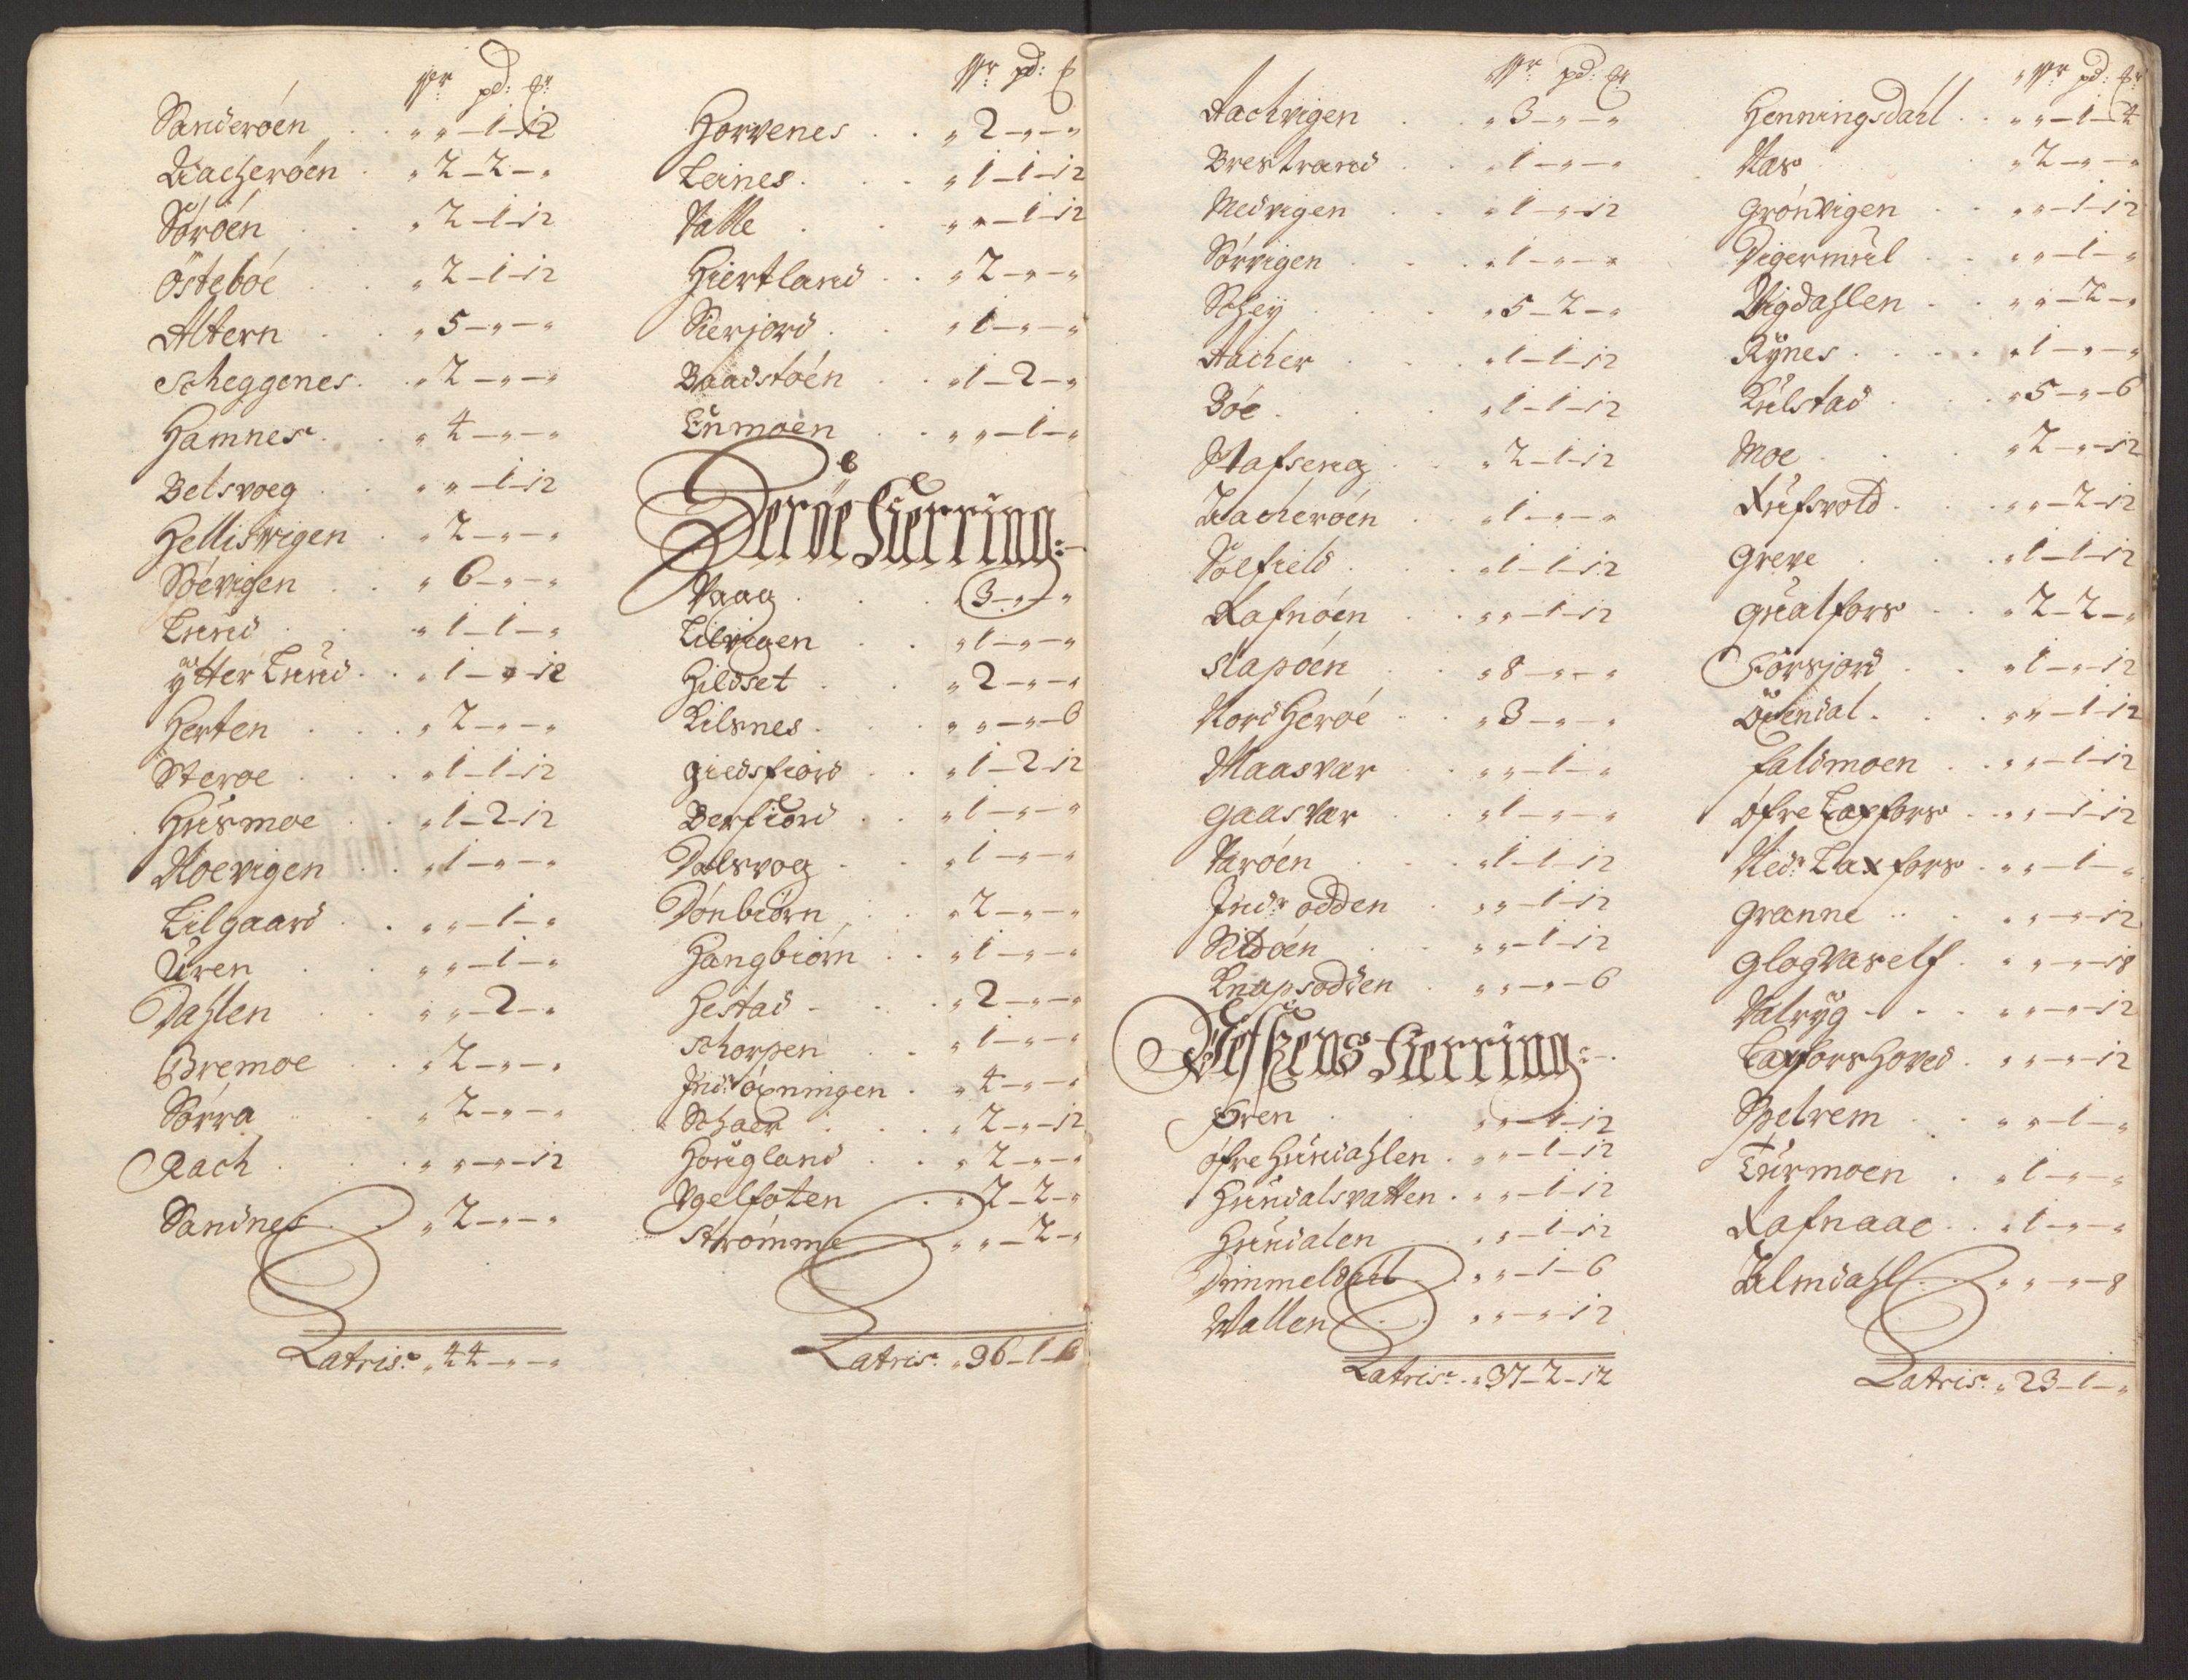 pd:
Sanderøen „ „ – 1 – 12
Aacherøen „ 2 – 2 – „
Sørøen „ 2 – 1 – 12
Østebøe „ 2 – 1 – 12
Altern „ 5 – „ – „
Scheggenes „ 2 – „ – „
Hamnes „ 4 – „ – „
Belsvoeg „ „ – 1 – 12
Hellisvigen „ 2 – „ – „
Søevigen „ 6 – „ – „
Lund „ 1 – 1 – „
ytter Lund „ 1 – „ – 12
Herten „ 2 – „ – „
Sterøe „ 1 – 1 – 12
Husmoe „ 1 – 2 – 12
Moevigen „ 1 – „ – „
Lilgaard „ „ – 1 – „
Uren „ „ – 1 – „
Dahlen „ „ – 2 – „
Bremoe „ 2 – „ – „
Sørra „ 2 – „ – „
Rach „ „ – „ – 12
Sandnes „ 2 – „ – „
Latris: „ 44 – „ – „
pd:
Horvenes „ 2 – „ – „
Leines „ 1 – 1 – 12
Valle „ „ – 1 – 12
Hiertland „ 2 – „ – „
Sierjord „ 1 – „ – „
Baadstøen „ 1 – 2 – „
Lunmoen „ „ – 1 – „
Herøe Fierring:
Vaag „ 3 – „ – „
Lilvigen „ 1 – „ – „
Hildset „ 2 – „ – „
Kilsnes „ „ – „ – 6
giedsfiord „ 1 – 2 – 12
Berfiord „ 1 – „ – „
Dalsvog „ 1 – „ – „
Dønbiørn „ 2 – „ – „
Hangbiørn „ 1 – „ – „
Hestad „ 2 – „ – „
Schorpen „ 1 – „ – „
Ind: øxningen „ 4 – „ – „
Schaer „ 2 – „ – 12
Hougland „ 2 – „ – „
Vgelfoten „ 2 – 2 – „
Strømme „ „ – 2 – „
Latris: „ 36 – 1 – 6
pd:
Aachvigen „ 3 – „ – „
Brestrand „ 1 – „ – „
Medvigen „ 1 – „ – 12
Sørvigen „ 1 – „ – „
Schey „ 5 – 2 – „
Aacher „ 1 – 1 – 12
Bøe „ 1 – 1 – 12
Stafseng „ 2 – 1 – 12
Aacherøen „ 1 – „ – „
Solfield „ 1 – 1 – 12
Rafnøen „ „ – 1 – 12
Slapøen „ 8 – „ – „
Nord Herøe „ 3 – „ – „
Maasvær „ „ – 1 – „
Gaasvær „ 1 – „ – „
Varøen „ 1 – 1 – 12
Ind: odden „ „ – 1 – 12
Sildøen „ „ – 1 – 12
Knapsodden „ „ – „ – 6
Vefsens Fierring:
Øren „ „ – 1 – 12
øfre Hundahlen „ „ – 1 – 12
Hundalsvatten „ „ – 1 – 12
Hundalen „ „ – 1 – 12
Dimmeldahl „ „ – 1 – 6
Wallen „ „ – „ – 12
Latris: „ 37 – 2 – 12
pd:
Henningsdahl „ „ – 1 – 4
Næs „ 2 – „ – „
Grønvigen „ „ – 1 – 12
Digermul „ „ – 1 – „
Vigdahlen „ „ – 2 – „
Rynes „ 1 – „ – „
Kulstad „ 5 – „ – 6
Moe „ 2 – „ – 12
Rufsvold „ „ – 2 – 12
Greve „ 1 – 1 – 12
Gualfors „ 2 – 2 – „
Forsjord „ 1 – „ – 12
Øxendal „ „ – 1 – 12
faldmoen „ „ – 1 – 12
øfre Laxfors „ „ – 1 – 12
Ned: Laxfors „ „ – 1 – „
Granne „ „ – „ – 12
Glogvaself „ „ – „ – 18
Valryg „ „ – „ – 12
Laxfors hoved „ „ – „ – 12
Spelrem „ „ – 1 – „
Turmoen „ 1 – „ – „
Rafnaae „ 1 – „ – „
Almdahl „ „ – „ – 8
Latris: „ 23 – 1 – „